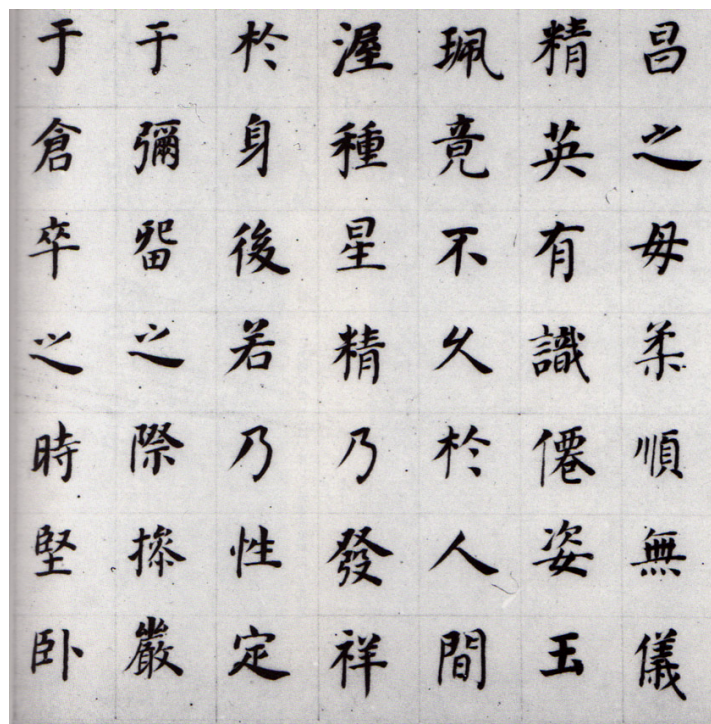 昌之母柔順無儀
精英有識僊姿玉
珮竟不久於人間
渥種星精乃發祥
於身後若乃性定
于彌留之際摻嚴
于倉卒之時堅卧